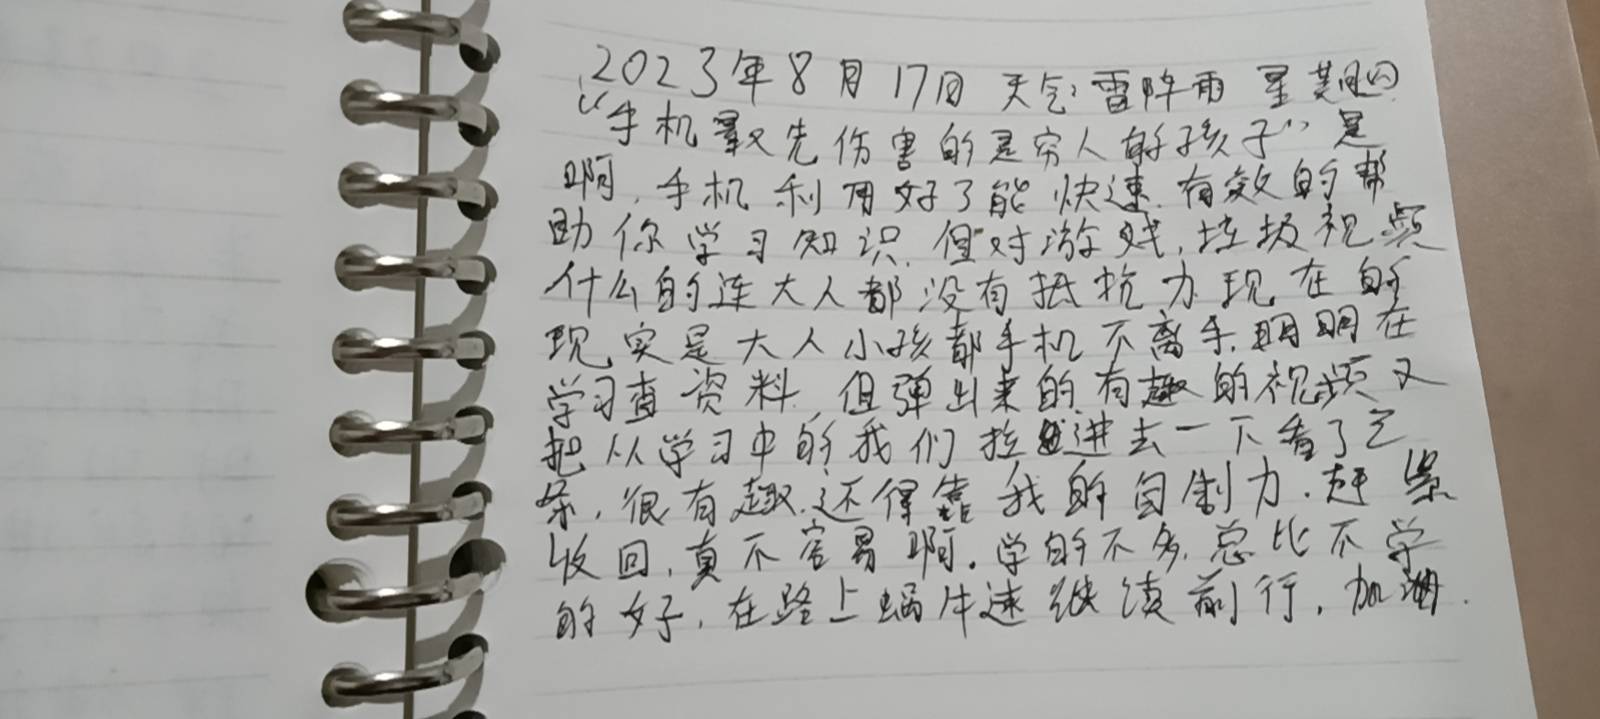 2023年8月17日 天气:雷阵雨 星期四
“手机最先伤害的是穷人的孩子”是
啊,手机利用好了能快速.有效的帮
助你学习知识.但对游戏,垃圾视频
什么的连大人都没有抵抗力.现在的
现实是大人小孩都手机不离手.明明在
学习查资料.但弹出来的有趣的视频又
把从学习中的我们拉进去一下看了
条,很有趣.还得靠我的自制力.赶紧
收回,真不容易啊.学的不多.总比不学
的好,在路上蜗牛速继续前行,加油.